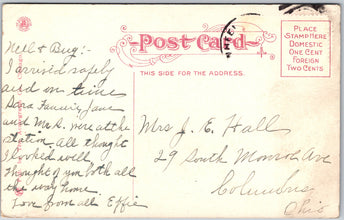 Post Card
THIS SIDE FOR THE ADDRESS.
PLACE
STAMP HERE
DOMESTIC
ONE CENT
FOREIGN
TWO CENTS
Nell & Bug:-
I arrived safely
and on time
Sara Fannie, Jane
and Mr. K. were at the
station. All thought
I looked well
thought of you both all
the way home.
Love from all Effie
Mrs J. E. Hall
29 South Monroe Ave
Columbus
Ohio